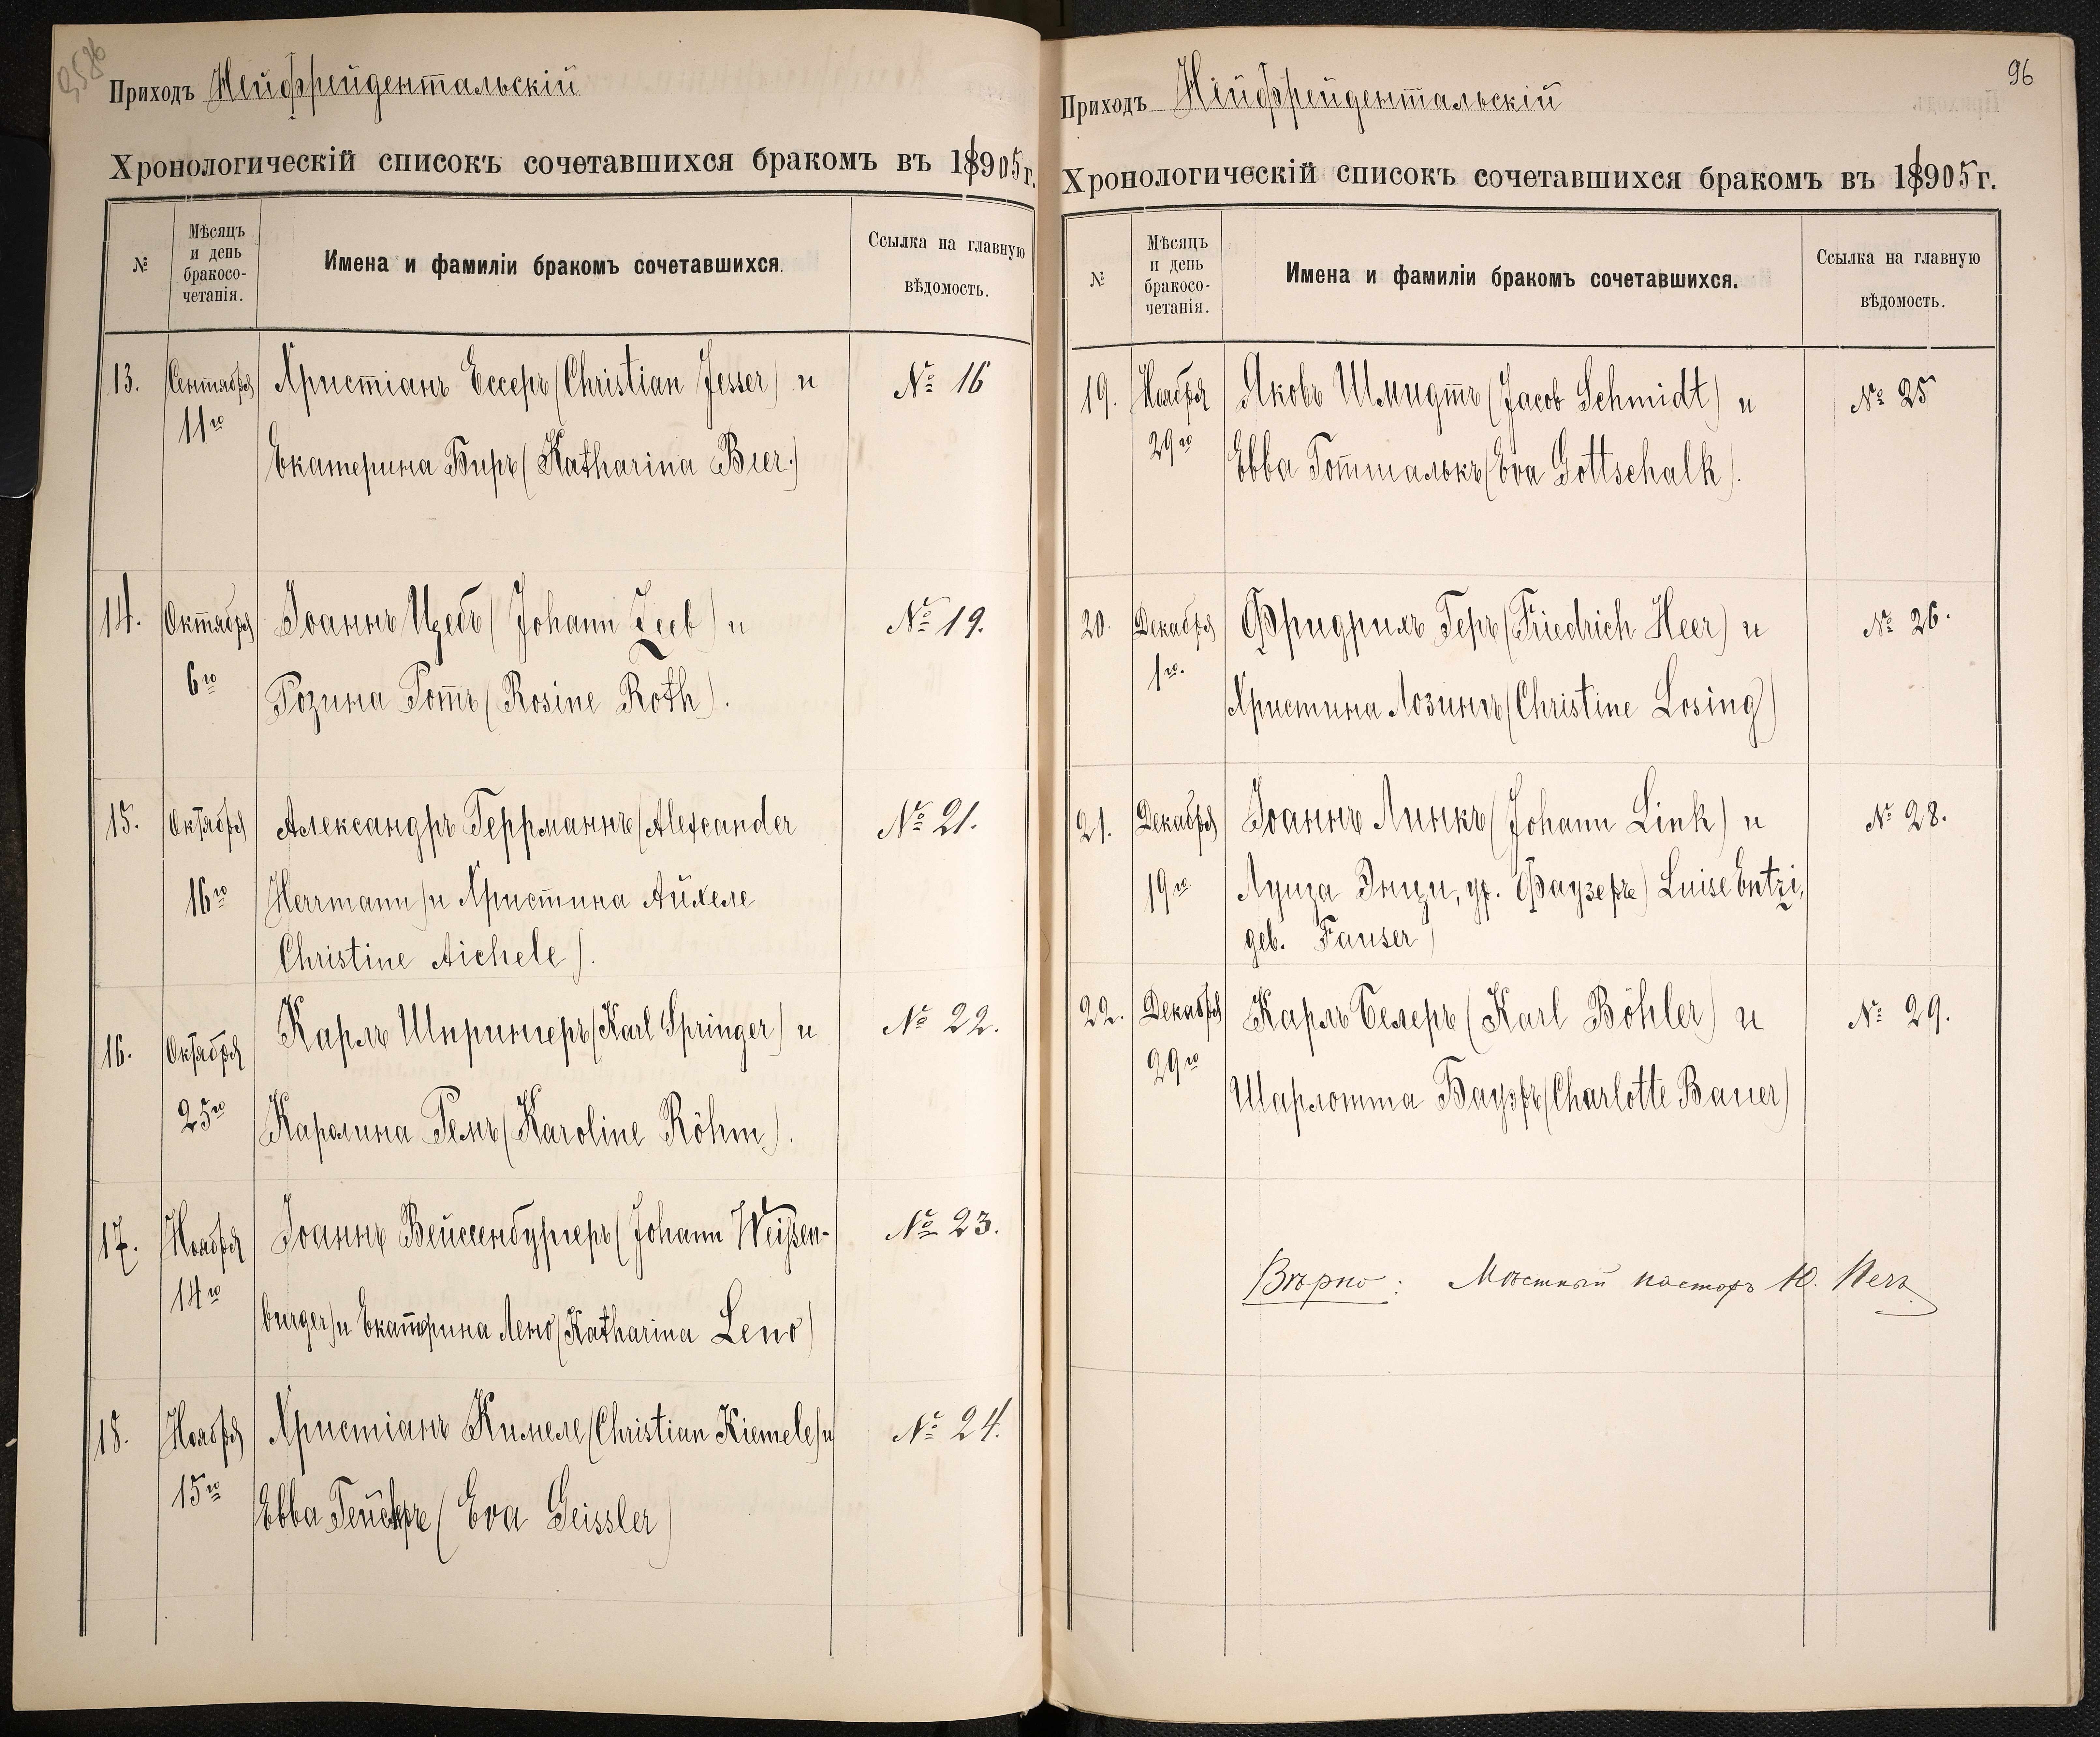 Приходъ Нейфрейдентальскій
Хронологическій списокъ сочетавшихся бракомъ въ 1905 г.
№
Мѣсяцъ
и день
бракосо-
четанія.
Имена и фамиліи бракомъ сочетавшихся.
Ссылка на главную
вѣдомость.
13. Сентября Христіанъ Ессеръ (Christian Jesser) и № 16
11го Екатерина Биръ (Katharina Bier.)
14. Октября Іоаннъ Цеебъ (Johann Zeeb) и № 19.
6го Розина Ротъ (Rosine Roth).
15. Октября Александръ Геррманнъ (Alexander № 21.
16го Herrmann) и Христина Айхеле
Christine Aichele).
16. Октября Карлъ Шпрингеръ (Karl Springer) и № 22.
25го Каролина Ремъ (Karoline Röhm).
17. Ноября Іоаннъ Вейссенбургеръ (Johann Weißen- № 23.
14го burger) и Екатерина Лено (Katharina Leno)
18. Ноября Христіанъ Кимеле (Christian Kiemele) и № 24.
15го Евва (Eva Geissler)
96
Приходъ Нейфрейдентальскій
Хронологическій списокъ сочетавшихся бракомъ въ 1905 г.
№
Мѣсяцъ
и день
бракосо-
четанія.
Имена и фамиліи бракомъ сочетавшихся.
Ссылка на главную
вѣдомость.
19. Ноября Яковъ Шмидтъ (Jacob Schmidt) и № 25
29го Евва Готшалькъ (Eva Gottschalk).
20. Декабря Фридрихъ Геръ (Friedrich Heer) и № 26.
1го. Христина Лозингъ (Christine Losing)
21. Декабря Іоаннъ Линкъ (Johann Link) и № 28.
19го Луиза Энци, ур. Фаузеръ) Luise Entzi,
geb. Fauser)
22. Декабря Карлъ Белеръ (Karl Böhler) и № 29.
29го Шарлотта Бауэръ (Charlotte Bauer)
Вѣрно: Мѣстный пасторъ Ю.